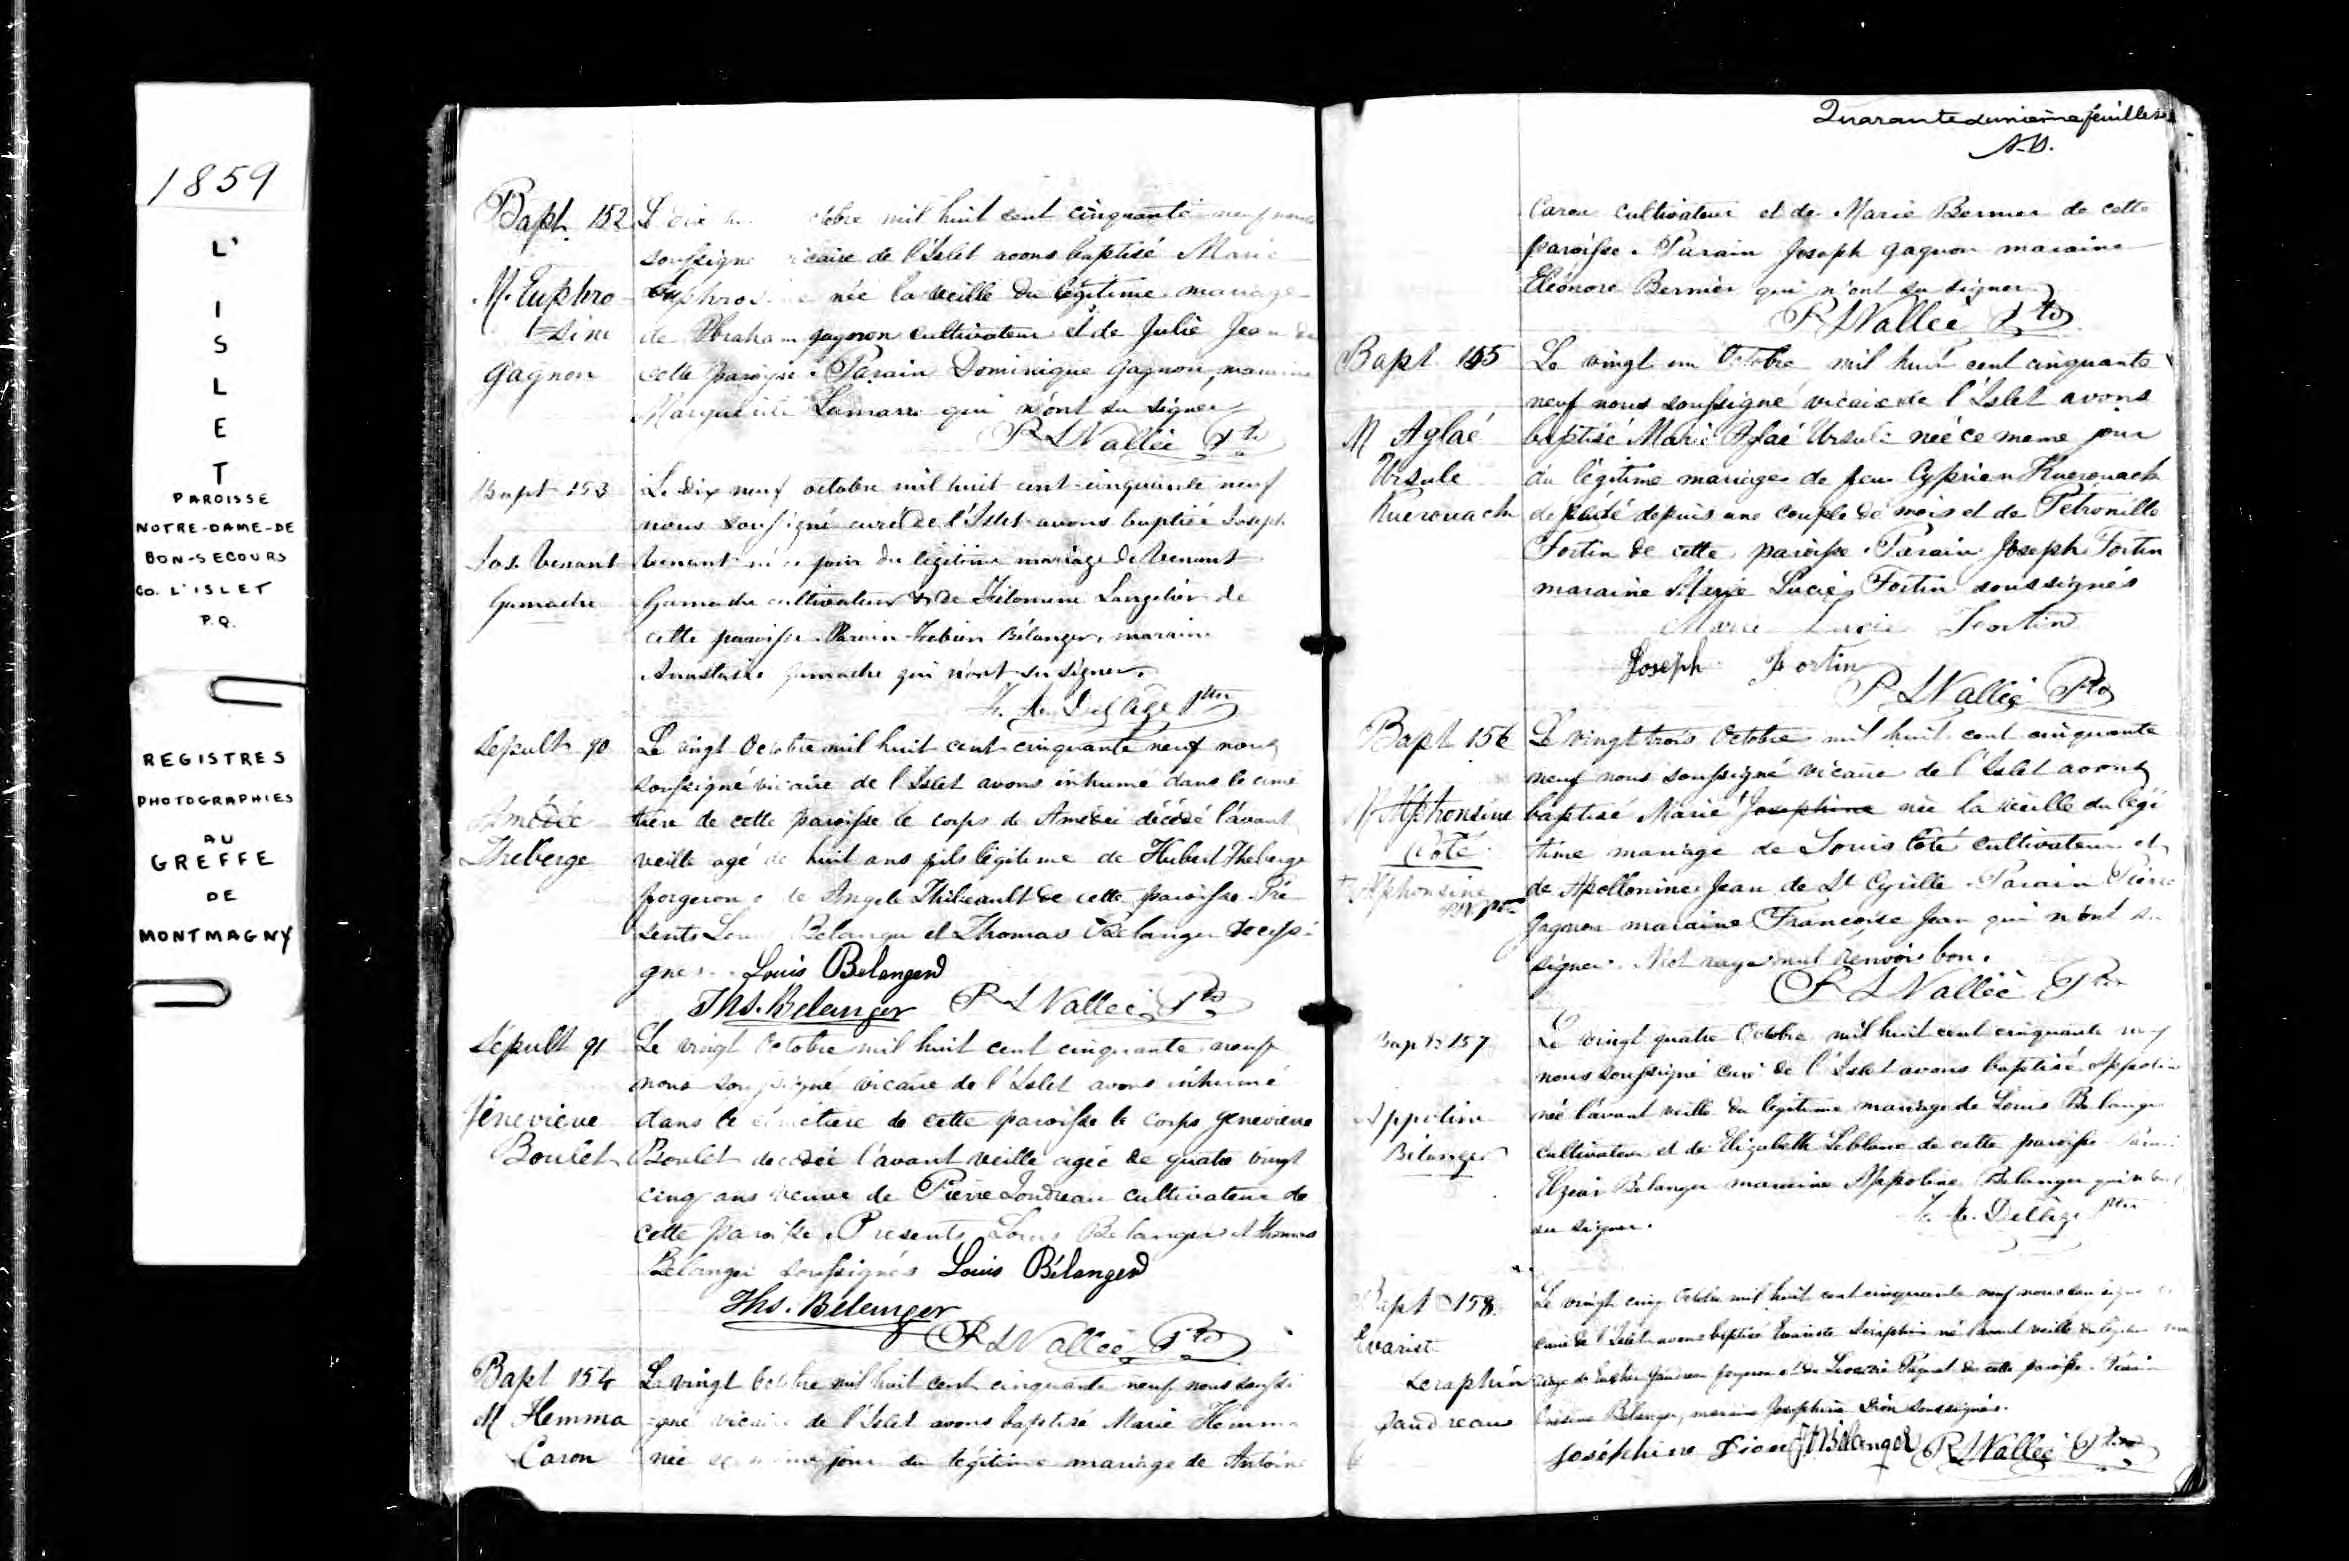 1859
L'
I
S
L
E
T
PAROISSE
NOTRE-DAME-DE
BON-SECOURS
Co. L'ISLET
P.Q.
REGISTRES
PHOTOGRAPHIES
AU
GREFFE
DE
MONTMAGNY
Bapt. 152
M. Euphro
-sine
Gagnon
octobre mil huit cent cinquante neuf nous
soussigné vicaire de l'Islet avons baptisé Marie
Euphrosine née la veille du légitime mariage
de Abraham Gagnon cultivateur et de Julie Jean de
cette paroisse. Parain Dominique Gagnon, maraine
Marguerite Lamarre qui n'ont su signer
P L Vallée Ptre
Bapt 153
Jos. Venant
Gamache
Le dix neuf octobre mil huit cent cinquante neuf
nous soussigné curé de l'Islet avons baptisé Joseph
Venant né ce jour du légitime mariage de Venant
Gamache cultivateur & de Philomene Langelier de
cette paroisse. Parain Bélanger, maraine
Anastasie Gamache qui n'ont su signer.
Delage Ptre
Sepult 90
Amédée
Theberge
Le vingt Octobre mil huit cent cinquante neuf nous
soussigné vicaire de l'Islet avons inhumé dans le cime
tière de cette paroisse le corps de Amédée décédé l'avant
veille agé de huit ans fils légitime de Hubert Theberge
forgeron & de Angele Thibeault de cette paroisse. Pré
sents Louis Belanger et Thomas Belanger soussi
gnés. Louis Belanger
Ths. Belanger P L Vallée Ptre
Sépult 91
Géneviève
Boulet
Le vingt Octobre mil huit cent cinquante neuf
nous soussigné vicaire de l'Islet avons inhumé
dans le cimetiere de cette paroisse le corps Genevieve
Boulet decedée l'avant veille agée de quatre vingt
cinq ans veuve de Pierre cultivateur de
cette paroisse. Presents Louis Belanger et Thomas
Bélanger soussignés Louis Bélanger
Ths. Belanger
P L Vallée Ptre
Bapt 154
M Hemma
Caron
Le vingt Octobre mil huit cent cinquante neuf nous soussi
-gné vicaire de l'Islet avons baptisé Marie Hemma
née ce même jour du légitime mariage de Antoine
Quarante deuxième feuillet
Caron cultivateur et de Marie Bernier de cette
paroisse. Parain Joseph Gagnon maraine
Eléonore Bernier qui n'ont su signer
P L Vallée Ptre
Bapt 155
M Aglaé
Ursule
Kuerouach
Le vingt un Octobre mil huit cent cinquante
neuf nous soussigné vicaire de l'Islet avons
baptisé Marie Aglaé Ursule née ce meme jour
du légitime mariage de feu Cyprien Kuerouack
depuis une couple de mois et de Petronille
Fortin de cette paroisse. Parain Joseph Fortin
maraine Marie Lucie Fortin soussignés
Marie Lucie Fortin
Joseph Fortin
P L Vallée Ptre
Bapt 156
M Alphonsine
Coté
+ Alphonsine
Le vingt trois Octobre mil huit cent cinquante
neuf nous soussigné vicaire de l'Islet avons
baptisé Marie Josephine née la veille du légi
time mariage de Louis Coté cultivateur et
de Apollonine Jean de St Cyrille. Parain Pierre
Gagnon maraine Francoise Jean qui n'ont su
signer. Mot rayé nul renvoi bon.
P L Vallée Ptre
Bapt 157
Appoline
Bélanger
Le vingt quatre Octobre mil huit cent cinquante neuf
nous soussigné curé de l'Islet avons baptisé Appoline
née l'avant veille du legitime mariage de Louis Belanger
cultivateur et de Elizabeth Leblanc de cette paroisse. Parain
Elzéar Belanger maraine Appoline Belanger qui n'ont
su signer.
Delage Ptre
Bapt 158
Evariste
Seraphin
Gaudreau
Le vingt cinq Octobre mil huit cent cinquante neuf nous soussigné
de l'Islet avons baptisé Evariste Séraphin né l'avant veille du légitime mari
age de Gaudreau forgeron et de de cette paroisse. Parain
Bélanger, maraine Josephine Dion soussignés.
Joséphine Dion Bélanger P L Vallée Ptre